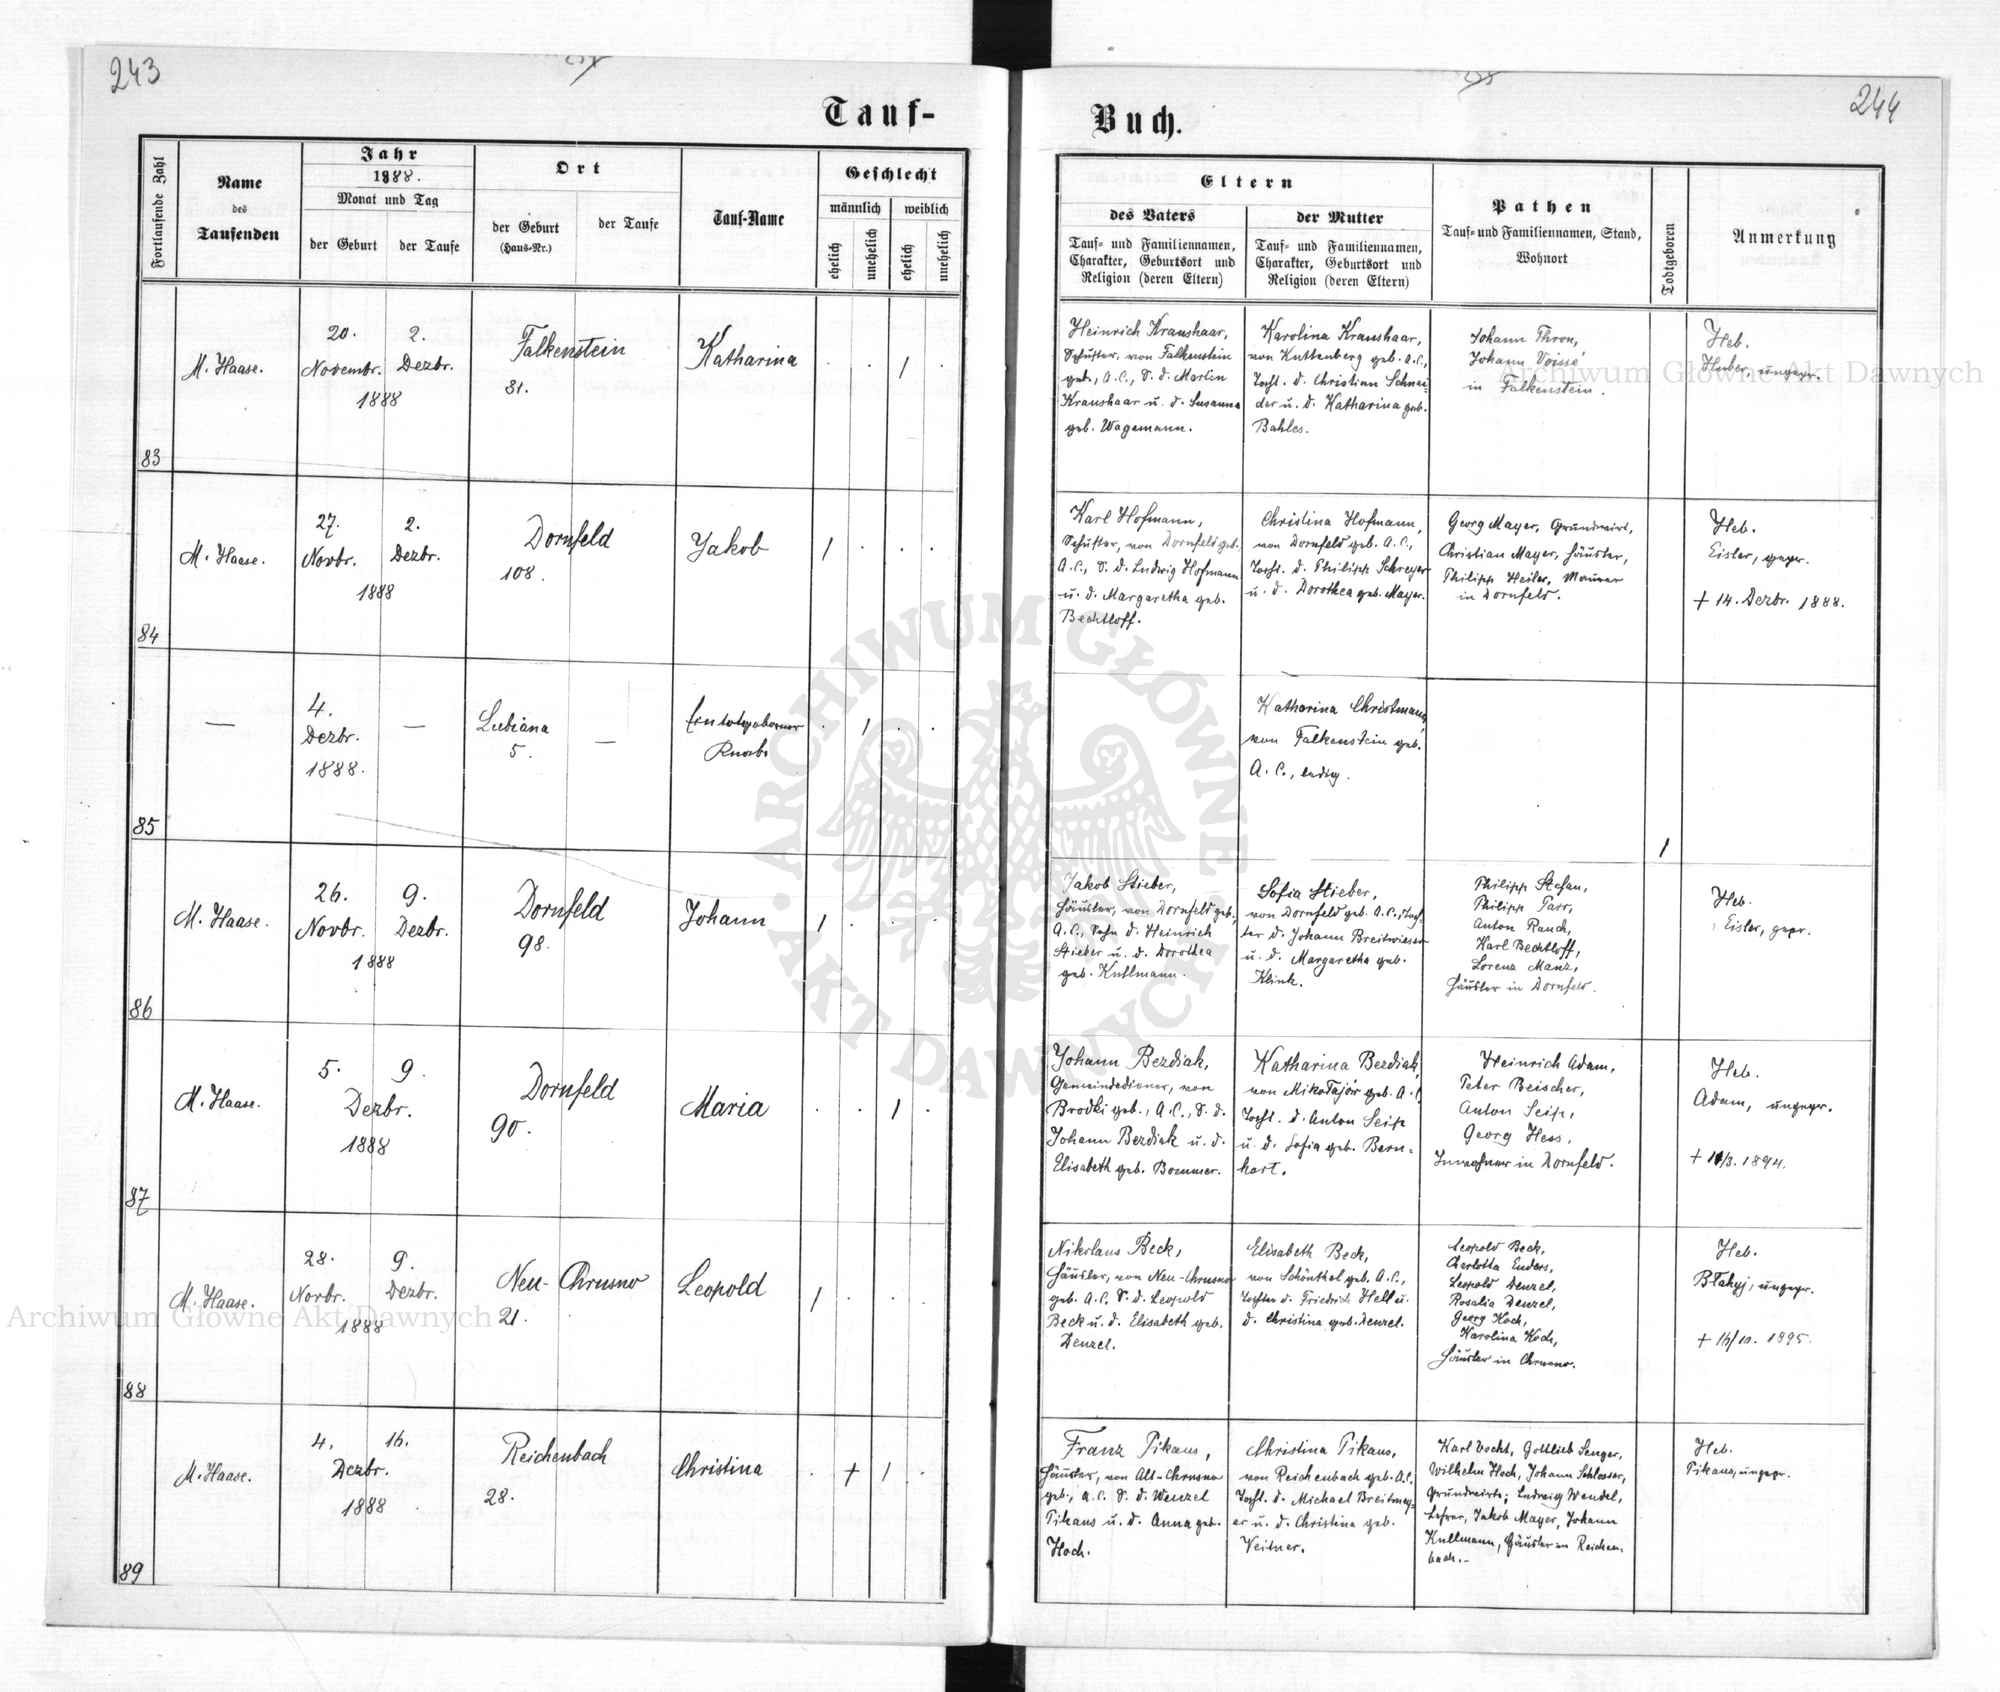 243
244
Tauf-
Buch.
Fortlaufende Zahl
Name
des
Taufenden
Jahr
1888.
Monat und Tag
der Geburt
der Taufe
Ort
der Geburt
(Haus-Nr.)
der Taufe
Tauf-Name
Geschlecht
männlich
weiblich
ehelich
unehelich
ehelich
unehelich
Eltern
des Vaters
Tauf- und Familiennamen,
Charakter, Geburtsort und
Religion (deren Eltern)
der Mutter
Tauf- und Familiennamen,
Charakter, Geburtsort und
Religion (deren Eltern)
Pathen
Tauf- und Familiennamen, Stand,
Wohnort
Todtgeboren
Anmerkung
83
M. Haase.
20.
Novembr.
2.
Dezbr.
1888
Falkenstein
31.
Katharina
Heinrich Kraushaar,
Schuster, von Falkenstein
geb., A.C., S. d. Martin
Kraushaar u. d. Susanna
geb. Wagemann.
Karolina Kraushaar,
von Kuttenberg geb. A.C.,
Tocht. d. Christian Schnei-
der u. d. Katharina geb.
Bahles.
Johann Thron,
Johann Voissé
in Falkenstein.
Heb.
Huber, ungepr.
84
M. Haase.
27.
Novbr.
2.
Dezbr.
1888
Dornfeld
108.
Jakob
Karl Hofmann,
Schuster, von Dornfeld geb.
A.C., S. d. Ludwig Hofmann
u. d. Margaretha geb.
Bechtloff.
Christina Hofmann,
von Dornfeld geb. A.C.,
Tocht. d. Philipp Schreyer
u. d. Dorothea geb. Mayer.
Georg Mayer, Grundwirt,
Christian Mayer, Häusler,
Philipp Heiler, Maurer
in Dornfeld.
Heb.
Eisler, gepr.
+ 14. Dezbr. 1888.
85
—
4.
Dezbr.
1888.
—
Lubiana
5.
—
Ein totgeborener
Knabe
Katharina Christmann,
von Falkenstein geb.
A.C., ledig.
86
M. Haase.
26.
Novbr.
9.
Dezbr.
1888
Dornfeld
98.
Johann
Jakob Stieber,
Häusler, von Dornfeld geb.,
A.C., Sohn d. Heinrich
Stieber u. d. Dorothea
geb. Kullmann.
Sofia Stieber,
von Dornfeld geb. A.C., Toch-
ter d. Johann Breitwieser
u. d. Margaretha geb.
Klink.
Philipp Stefan,
Philipp Parr,
Anton Rauch,
Karl Bechtloff,
Lorenz Manz,
Häusler in Dornfeld.
Heb.
Eisler, gepr.
87
M. Haase.
5.
9.
Dezbr.
1888
Dornfeld
90.
Maria
Johann Bezdiak,
Gemeindediener, von
Brodki geb., A.C., S. d.
Johann Bezdiak u. d.
Elisabeth geb. Bommer.
Katharina Bezdiak,
von Mikołajów geb. A.C.
Tocht. d. Anton Seip
u. d. Sofia geb. Bern-
hart.
Heinrich Adam,
Peter Beischer,
Anton Seip,
Georg Hess,
Inwohner in Dornfeld.
Heb.
Adam, ungepr.
88
M. Haase.
28.
Novbr.
9.
Dezbr.
1888
Neu-Chrusno
21.
Leopold
Nikolaus Beck,
Häusler, von Neu-Chrusno
geb. A.C. S. d. Leopold
Beck u. d. Elisabeth geb.
Denzel.
Elisabeth Beck,
von Schönthal geb. A.C.,
Tochter d. Friedrich Hell u.
d. Christina geb. Denzel.
Leopold Beck,
Charlotta Enders,
Leopold Denzel,
Rosalia Denzel,
Georg Koch,
Karolina Koch,
Häusler in Chrusno.
Heb.
Błahyj, ungepr.
+ 16/10. 1895.
89
M. Haase.
4.
16.
Dezbr.
1888
Reichenbach
28.
Christina
Franz Pikaus,
Häusler, von Alt-Chrusno
geb., A.C. S. d. Wenzel
Pikaus u. d. Anna geb.
Hoch.
Christina Pikaus,
von Reichenbach geb. A.C.
Tocht. d. Michael Breitmay-
er u. d. Christina geb.
Veitner.
Karl Vocht, Gottlieb Senger,
Wilhelm Hoch, Johann Schlosser,
Grundwirte; Ludwig Wendel,
Lehrer, Jakob Mayer, Johann
Kullmann, Häusler in Reichen-
bach.-
Heb.
Pikaus, ungepr.
Archiwum Główne Akt Dawnych
Archiwum Główne Akt Dawnych
ARCHIWUM GŁÓWNE AKT DAWNYCH